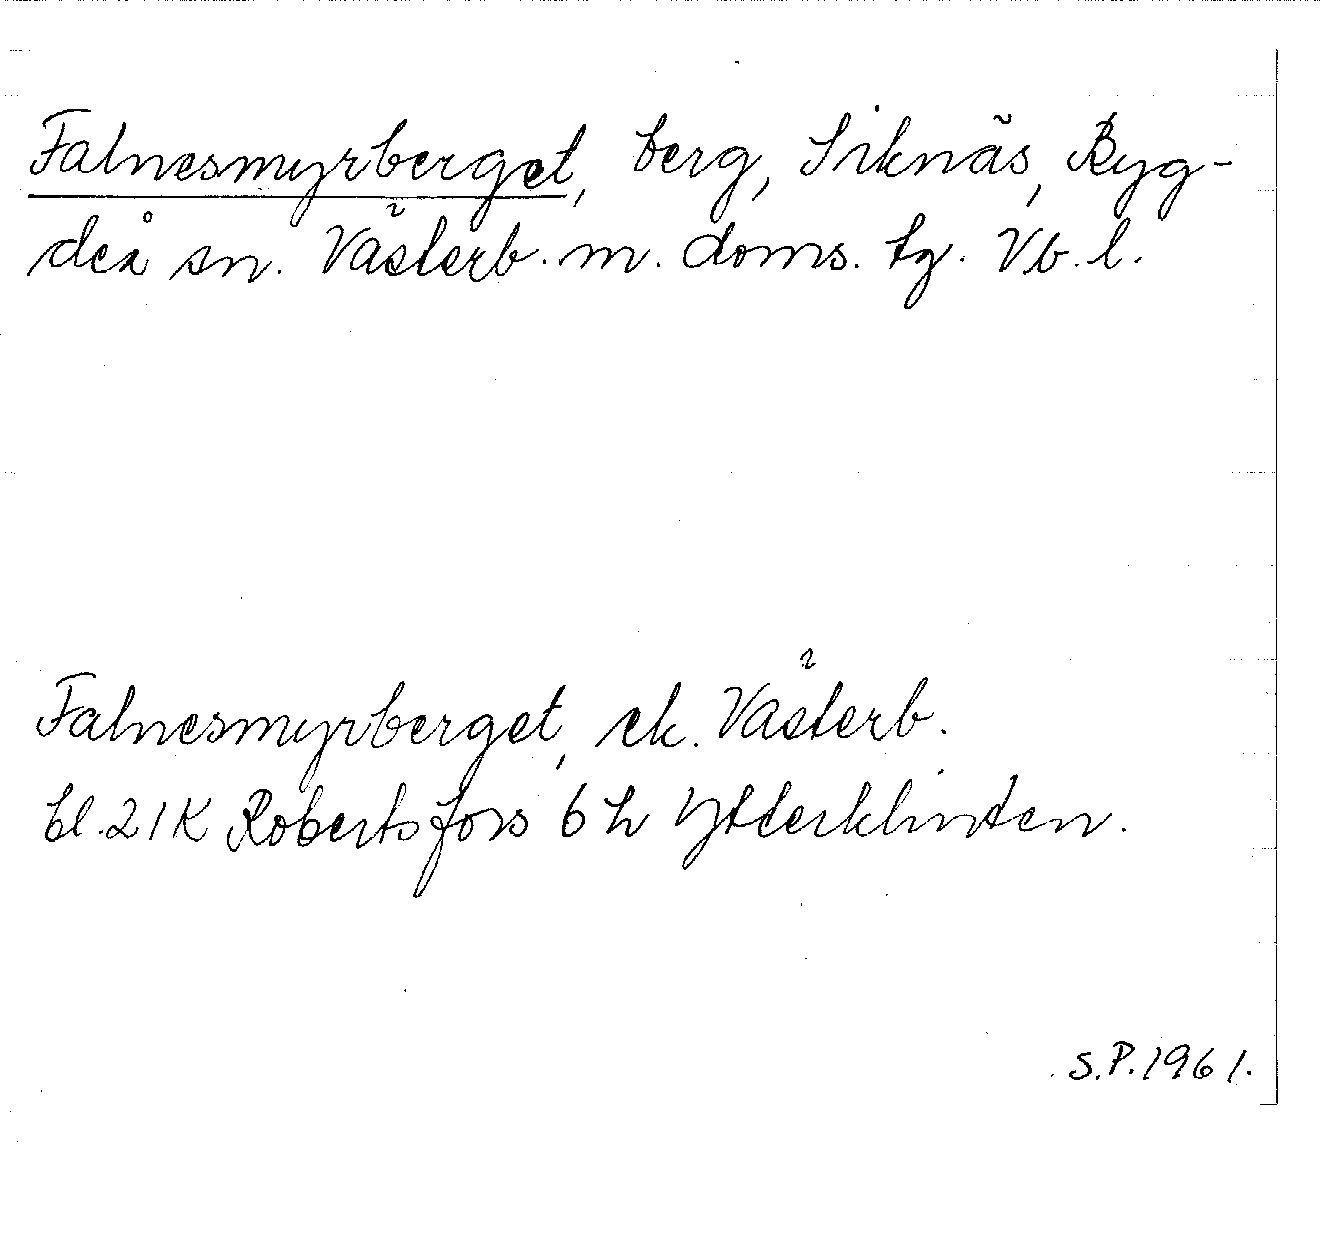 Falnesmyrberget, berg, Siknäs, Byg-
deå sn. Västerb. m. doms. tg. Vb. l.
Falnesmyrberget, ek. Västerb.
bl. 21K Robertsfors 6 h Ytterklinten.
S.P. 1961.